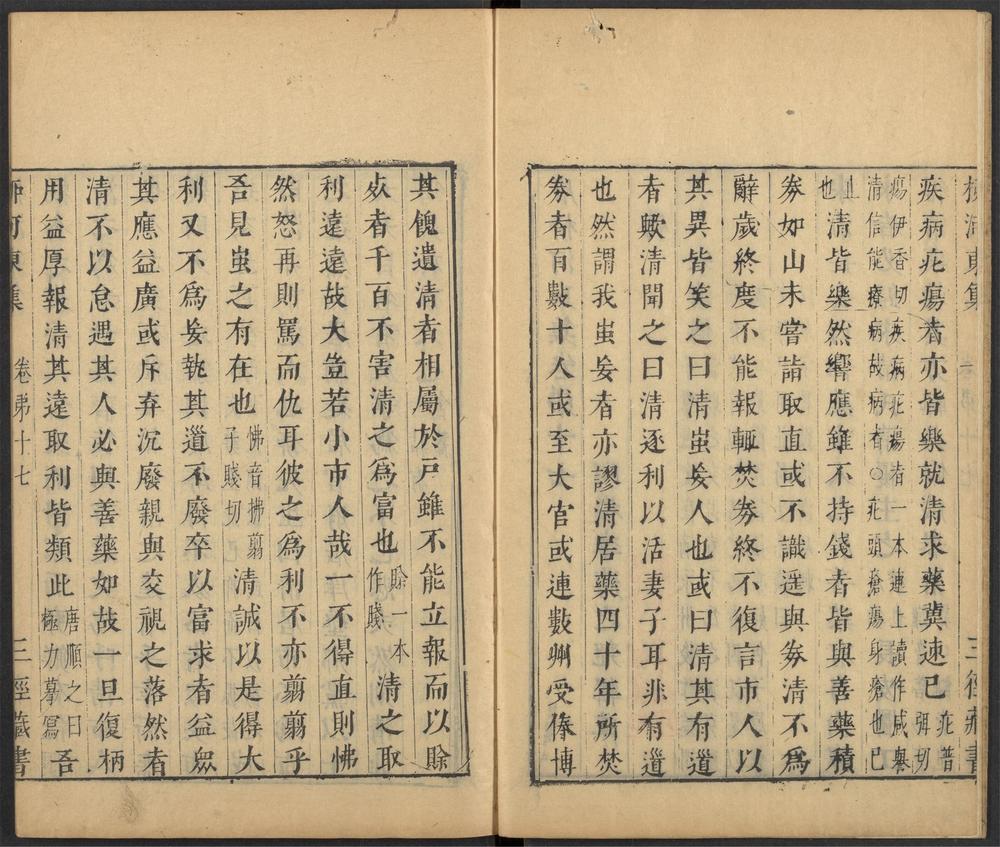 柳河東集 三徑藏書
疾病疕瘍者亦皆樂就清求藥冀速已疕普弭切
瘍伊香切疾病疕瘍者一本連上讀作咸譽
清信能療病故病者○疕頭瘡瘍身瘡也已
止也清皆樂然響應雖不持錢者皆與善藥積
券如山未嘗詣取直或不識遥與券清不爲
辭歲終度不能報輒焚券終不復言市人以
其異皆笑之曰清蚩妄人也或曰清其有道
者歟清聞之曰清逐利以活妻子耳非有道
也然謂我蚩妄者亦謬清居藥四十年所焚
券者百數十人或至大官或連數州受俸博
其餽遺清者相屬於戶雖不能立報而以賖
死者千百不害清之爲富也賖一本作賤清之取
利遠遠故大豈若小市人哉一不得直則怫
然怒再則罵而仇耳彼之爲利不亦翦翦乎
吾見蚩之有在也怫音拂翦子賤切清誠以是得大
利又不爲妄執其道不廢卒以富求者益衆
其應益廣或斥弃沉廢親與交視之落然者
清不以怠遇其人必與善藥如故一旦復柄
用益厚報清其遠取利皆類此唐順之曰極力摹寫吾
柳河東集 卷第十七 三徑藏書